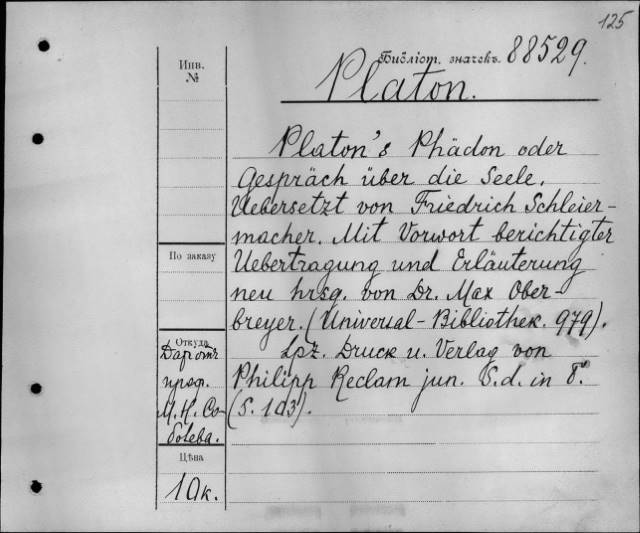 125
Библіот. значекъ. 88529.
Platon.
Инв.
№
Platon's Phädon oder
Gespräch über die Seele.
Uebersetzt von Friedrich Schleier-
macher. Mit Vorwort berichtigter
Uebertragung und Erläuterung
neu hrsg. von Dr. Max Ober-
breyer. (Universal-Bibliothek. 979).
Lpz. Druck u. Verlag von
Philipp Reclam jun. S.d. in 8°.
(S. 103).
По заказу
Откуда
Даръ отъ
проф.
М. Н. Со-
болева.
Цѣна
10к.